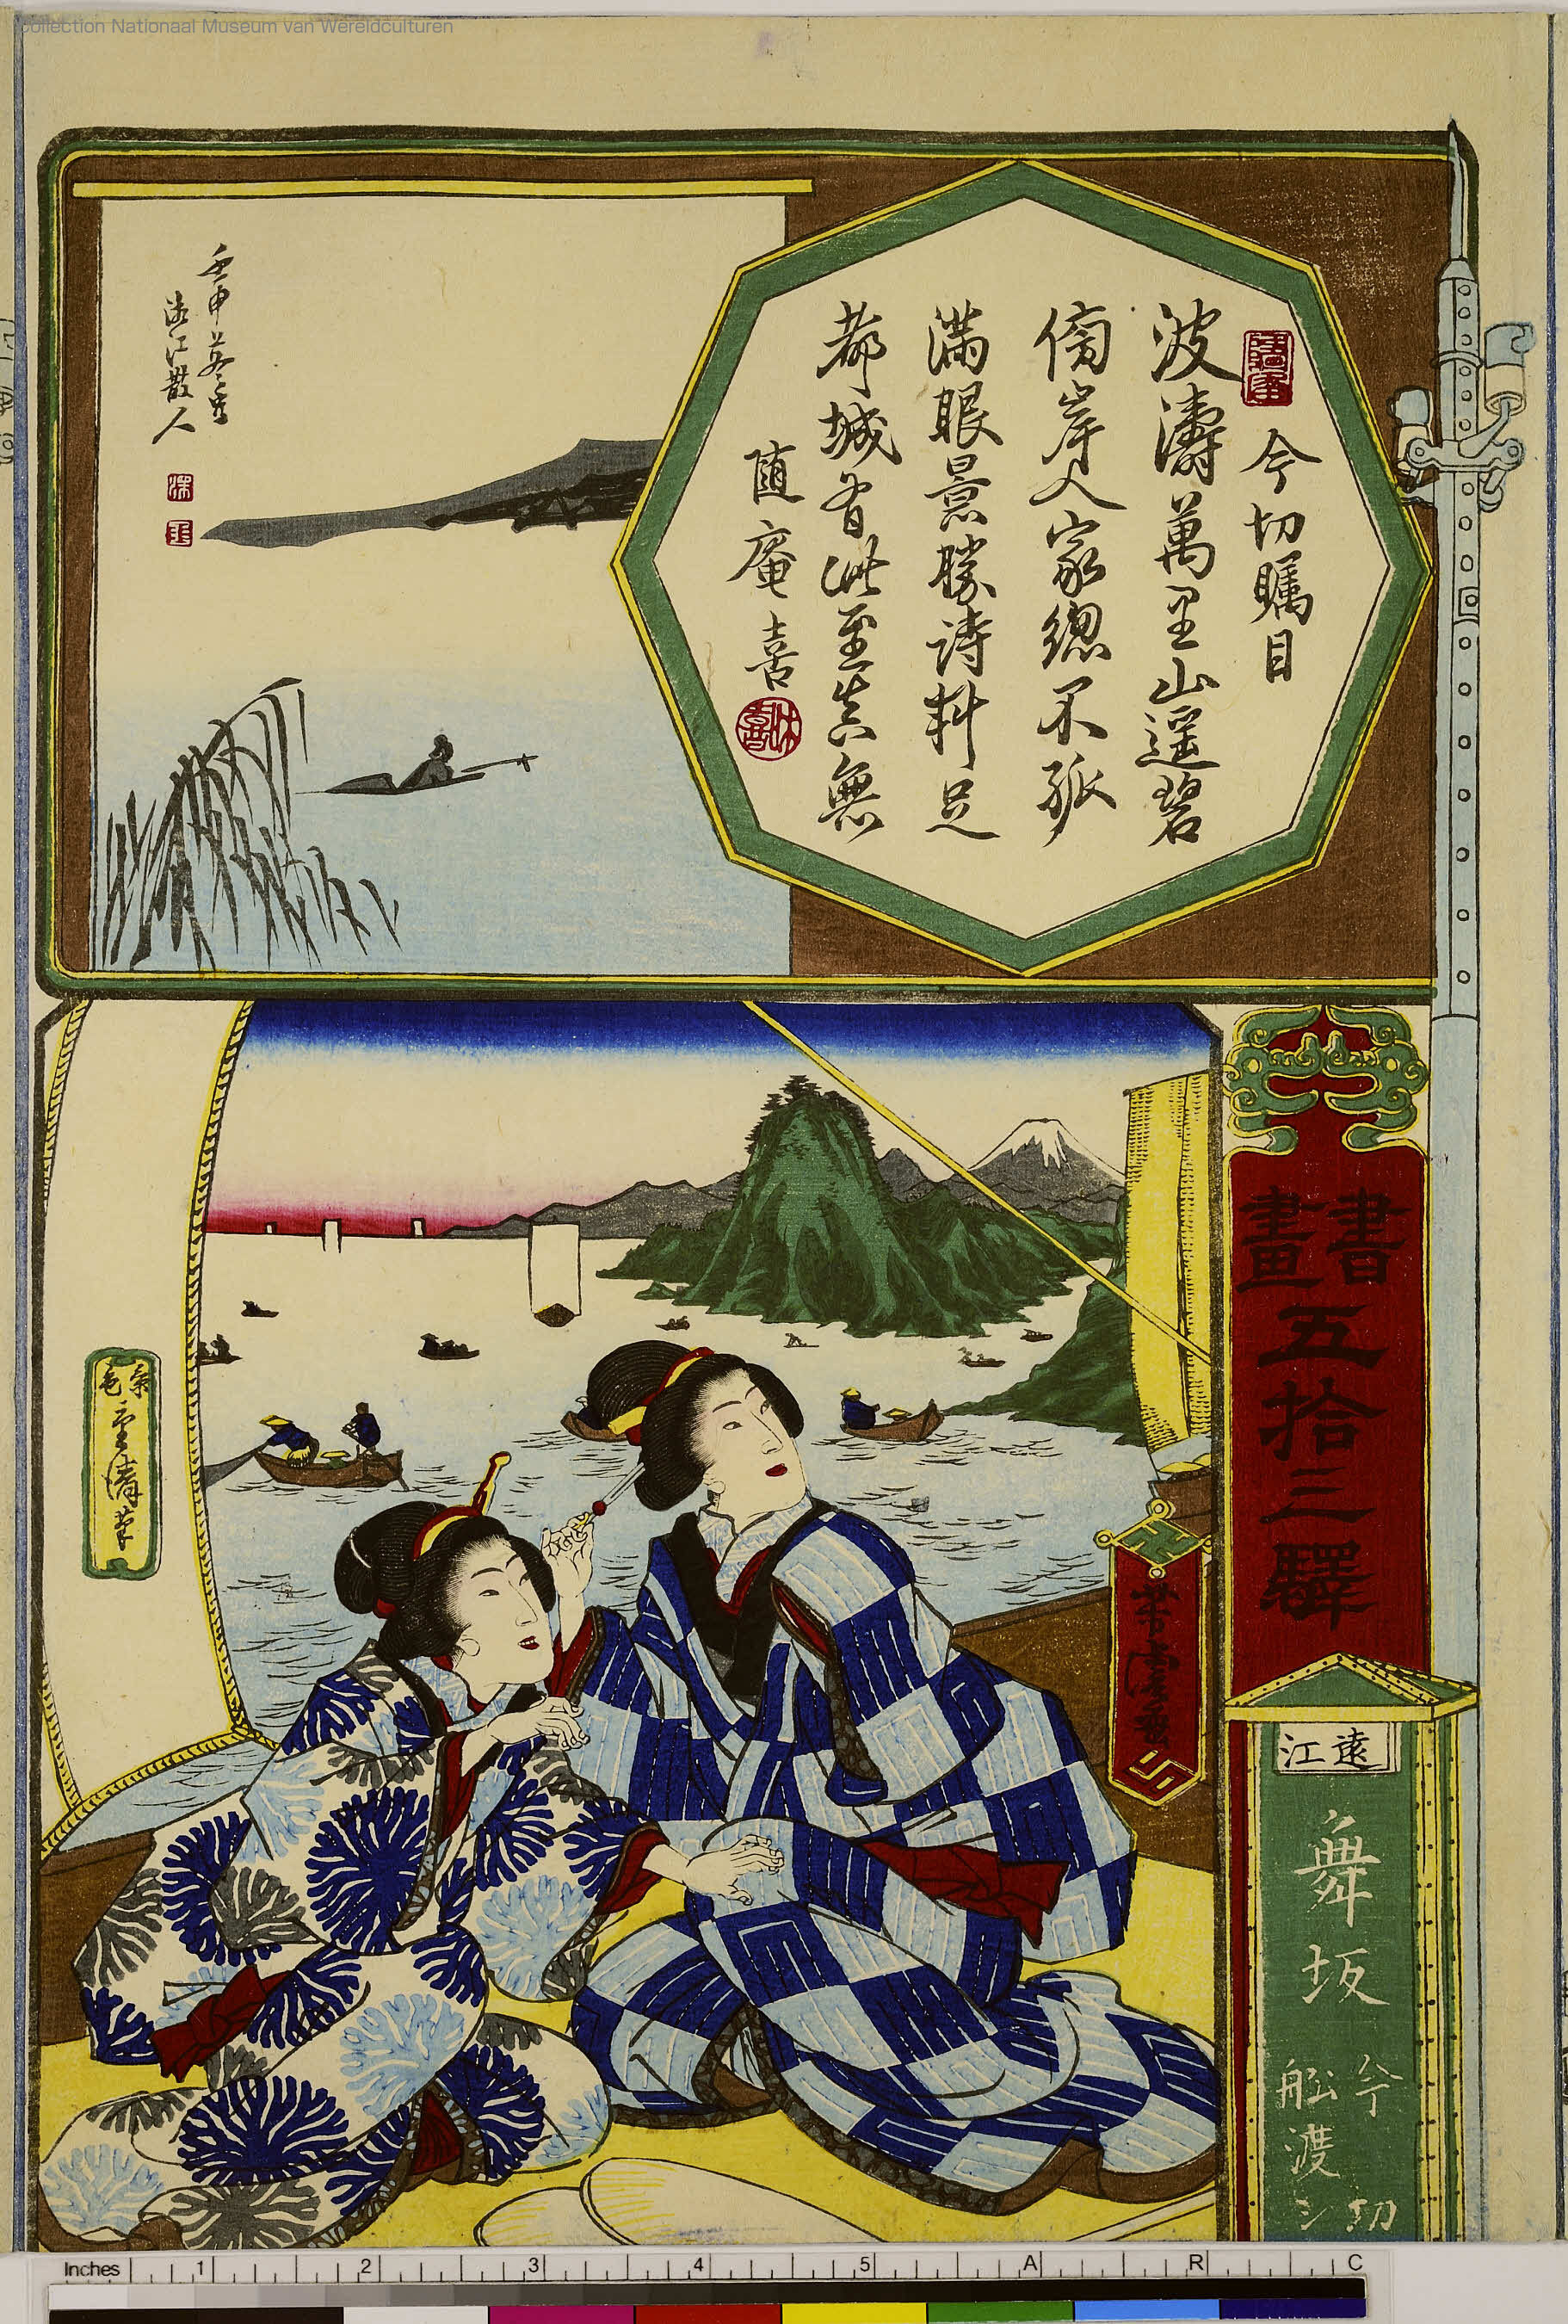 Collection Nationaal Museum van Wereldculturen
今切矚目
波濤萬里山遥碧
傍岸人家總不孤
満眼景勝詩料足
都城有此至真無
随庵喜
壬申
遠江散人
書畫五拾三驛
遠江
舞坂
今切
舩渡シ
应需
重清筆
Inches 1 2 3 4 5 A R C